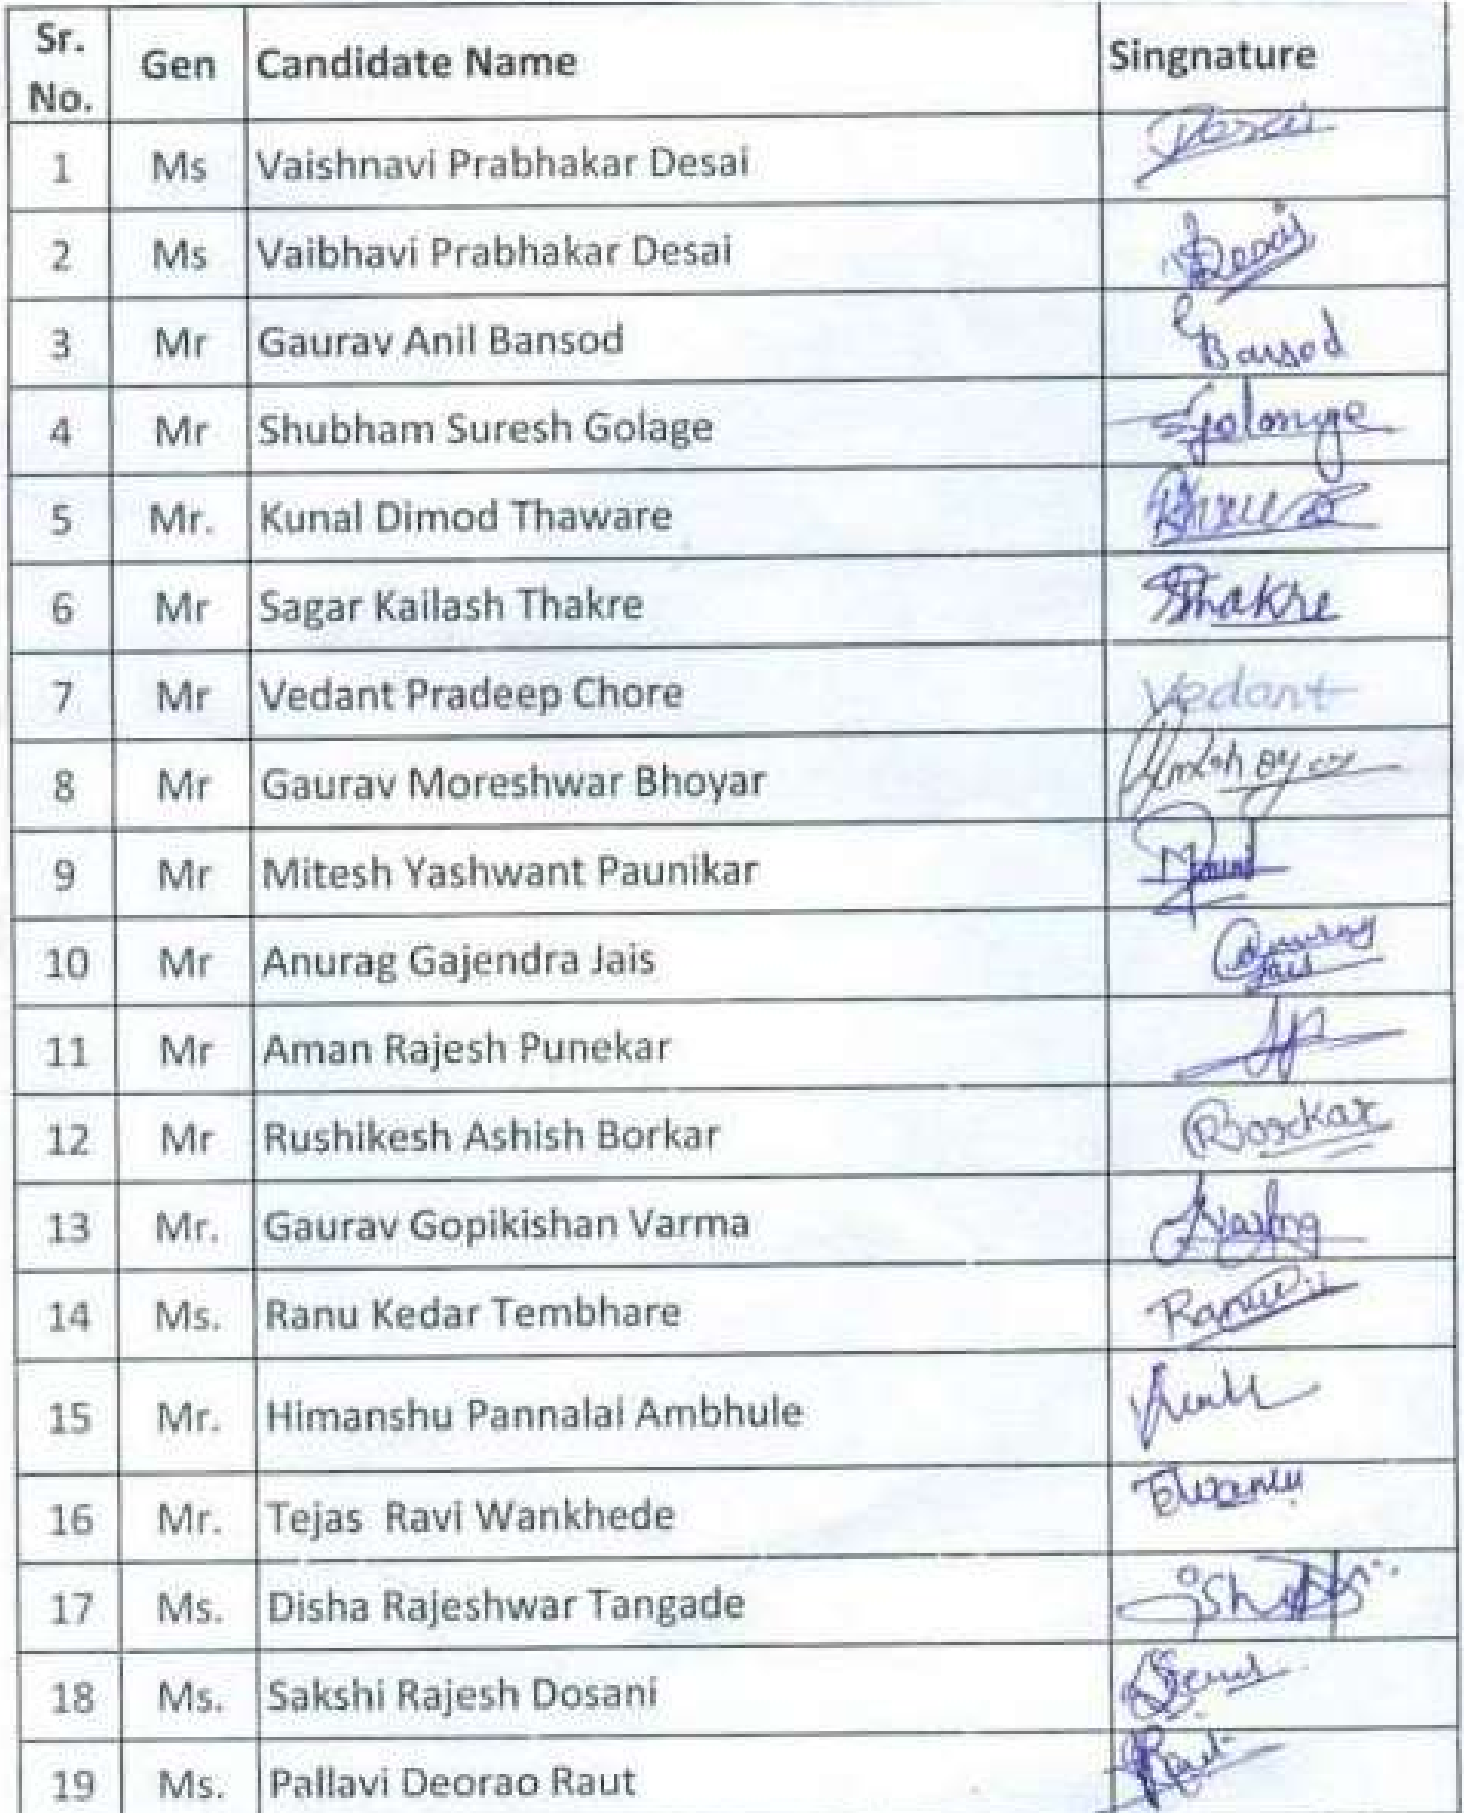 Sr. No. Gen Candidate Name Singnature
1 Ms Vaishnavi Prabhakar Desai Desai
2 Ms Vaibhavi Prabhakar Desai Desai
3 Mr Gaurav Anil Bansod Bansod
4 Mr Shubham Suresh Golage
5 Mr. Kunal Dimod Thaware
6 Mr Sagar Kailash Thakre Thakre
7 Mr Vedant Pradeep Chore Vedant
8 Mr Gaurav Moreshwar Bhoyar
9 Mr Mitesh Yashwant Paunikar
10 Mr Anurag Gajendra Jais Anurag Jais
11 Mr Aman Rajesh Punekar
12 Mr Rushikesh Ashish Borkar Borkar
13 Mr. Gaurav Gopikishan Varma
14 Ms. Ranu Kedar Tembhare
15 Mr. Himanshu Pannalal Ambhule
16 Mr. Tejas Ravi Wankhede
17 Ms. Disha Rajeshwar Tangade
18 Ms. Sakshi Rajesh Dosani
19 Ms. Pallavi Deorao Raut Raut